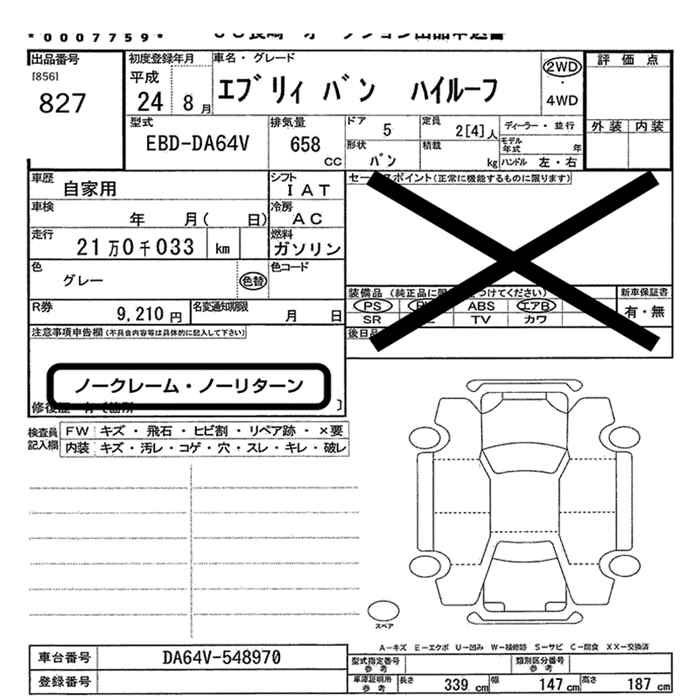 *0007759*
出品番号
[856]
827
初度登録年月
平成
24 8月
車名・グレード
エブリィ バン ハイルーフ
2WD
・
4WD
評価点
外装 内装
型式
EBD-DA64V
排気量
658 CC
ドア
5
定員
2[4]人
ディーラー・並行
形状
バン
積載
kg
モデル年式 年
ハンドル 左・右
車歴
自家用
シフト
IAT
車検
年 月( 日)
冷房
AC
走行
21万0千033 km
燃料
ガソリン
色
グレー
色替
色コード
R券
9,210円
名変通知期限
月 日
注意事項申告欄(不具合内容等は具体的に記入して下さい)
ノークレーム・ノーリターン
セー スポイント(正常に機能するものに限ります)
装備品(純正品に つけてください)
PS ABS エアB
SR TV カワ
新車保証書
有・無
後日品
検査員記入欄
FW キズ・飛石・ヒビ割・リペア跡・×要
内装 キズ・汚レ・コゲ・穴・スレ・キレ・破レ
スペア
A-キズ E-エクボ U-凹み W-補修跡 S-サビ C-腐食 XX-交換済
車台番号
DA64V-548970
登録番号
型式指定番号 参考
類別区分番号 参考
車庫証明用 参考
長さ 339cm 幅 147cm 高さ 187cm